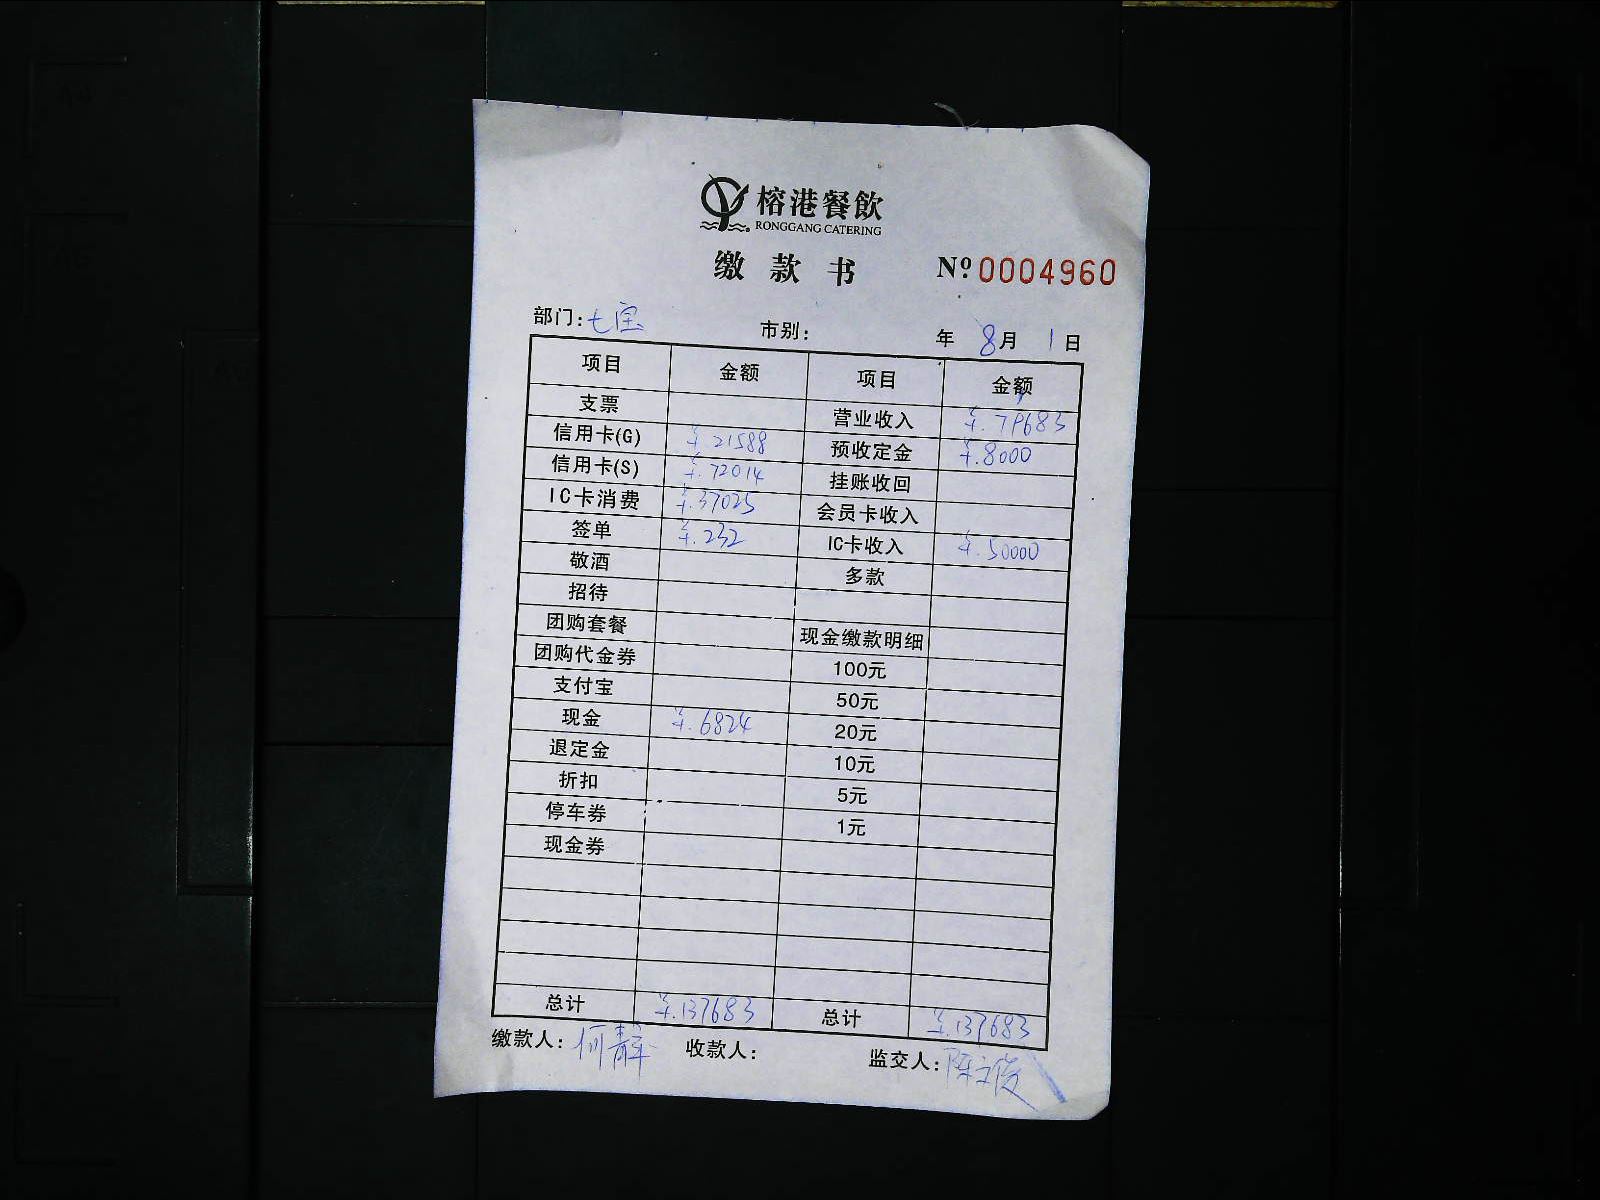 榕港餐飲
RONGGANG CATERING
缴款书 Nº 0004960
部门：七宝 市别： 年 8月 1日
项目 金额 项目 金额
支票 营业收入 ¥.79683
信用卡(G) ¥.21588 预收定金 ¥.8000
信用卡(S) ¥.72014 挂账收回
IC卡消费 ¥.37025 会员卡收入
签单 ¥.232 IC卡收入 ¥.50000
敬酒 多款
招待
团购套餐 现金缴款明细
团购代金券 100元
支付宝 50元
现金 ¥.6824 20元
退定金 10元
折扣 5元
停车券 1元
现金券
总计 ¥.137683 总计 ¥.137683
缴款人：何静 收款人： 监交人：陈文俊